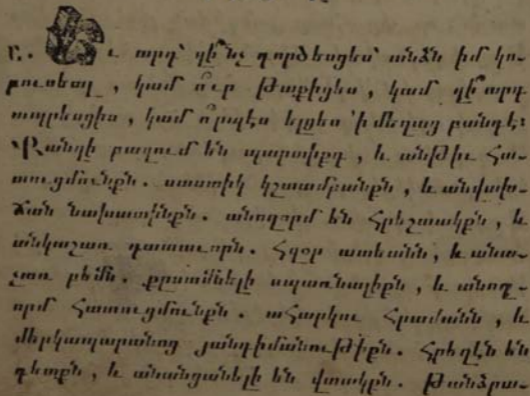 Ը. Եւ արդ՝ զի՞նչ գործեսցես՝ անձն իմ կո-
րուսեալ, կամ ո՞ւր թաքիցես, կամ զի՞արդ
ապրեսցիս, կամ ո՞րպէս ելցես ՚ի մեղաց բանդէ։
Քանզի բազում են պարտիքդ, և անթիւ հա-
տուցմունքն. սաստիկ կշտամբանքն, և անվախ-
ճան նախատինքն. անողորմ են հրեշտակքն, և
անկաշառ դատաւորն. հզօր ատեանն, և անա-
չառ բեմն. քստմնելի սպառնալիքն, և անող-
որմ հատուցմունքն. ահարկու հրամանն, և
մերկապարանոց յանդիմանութիքն. հրեղէն են
գետքն, և անանցանելի են վտակքն. թանձրա-